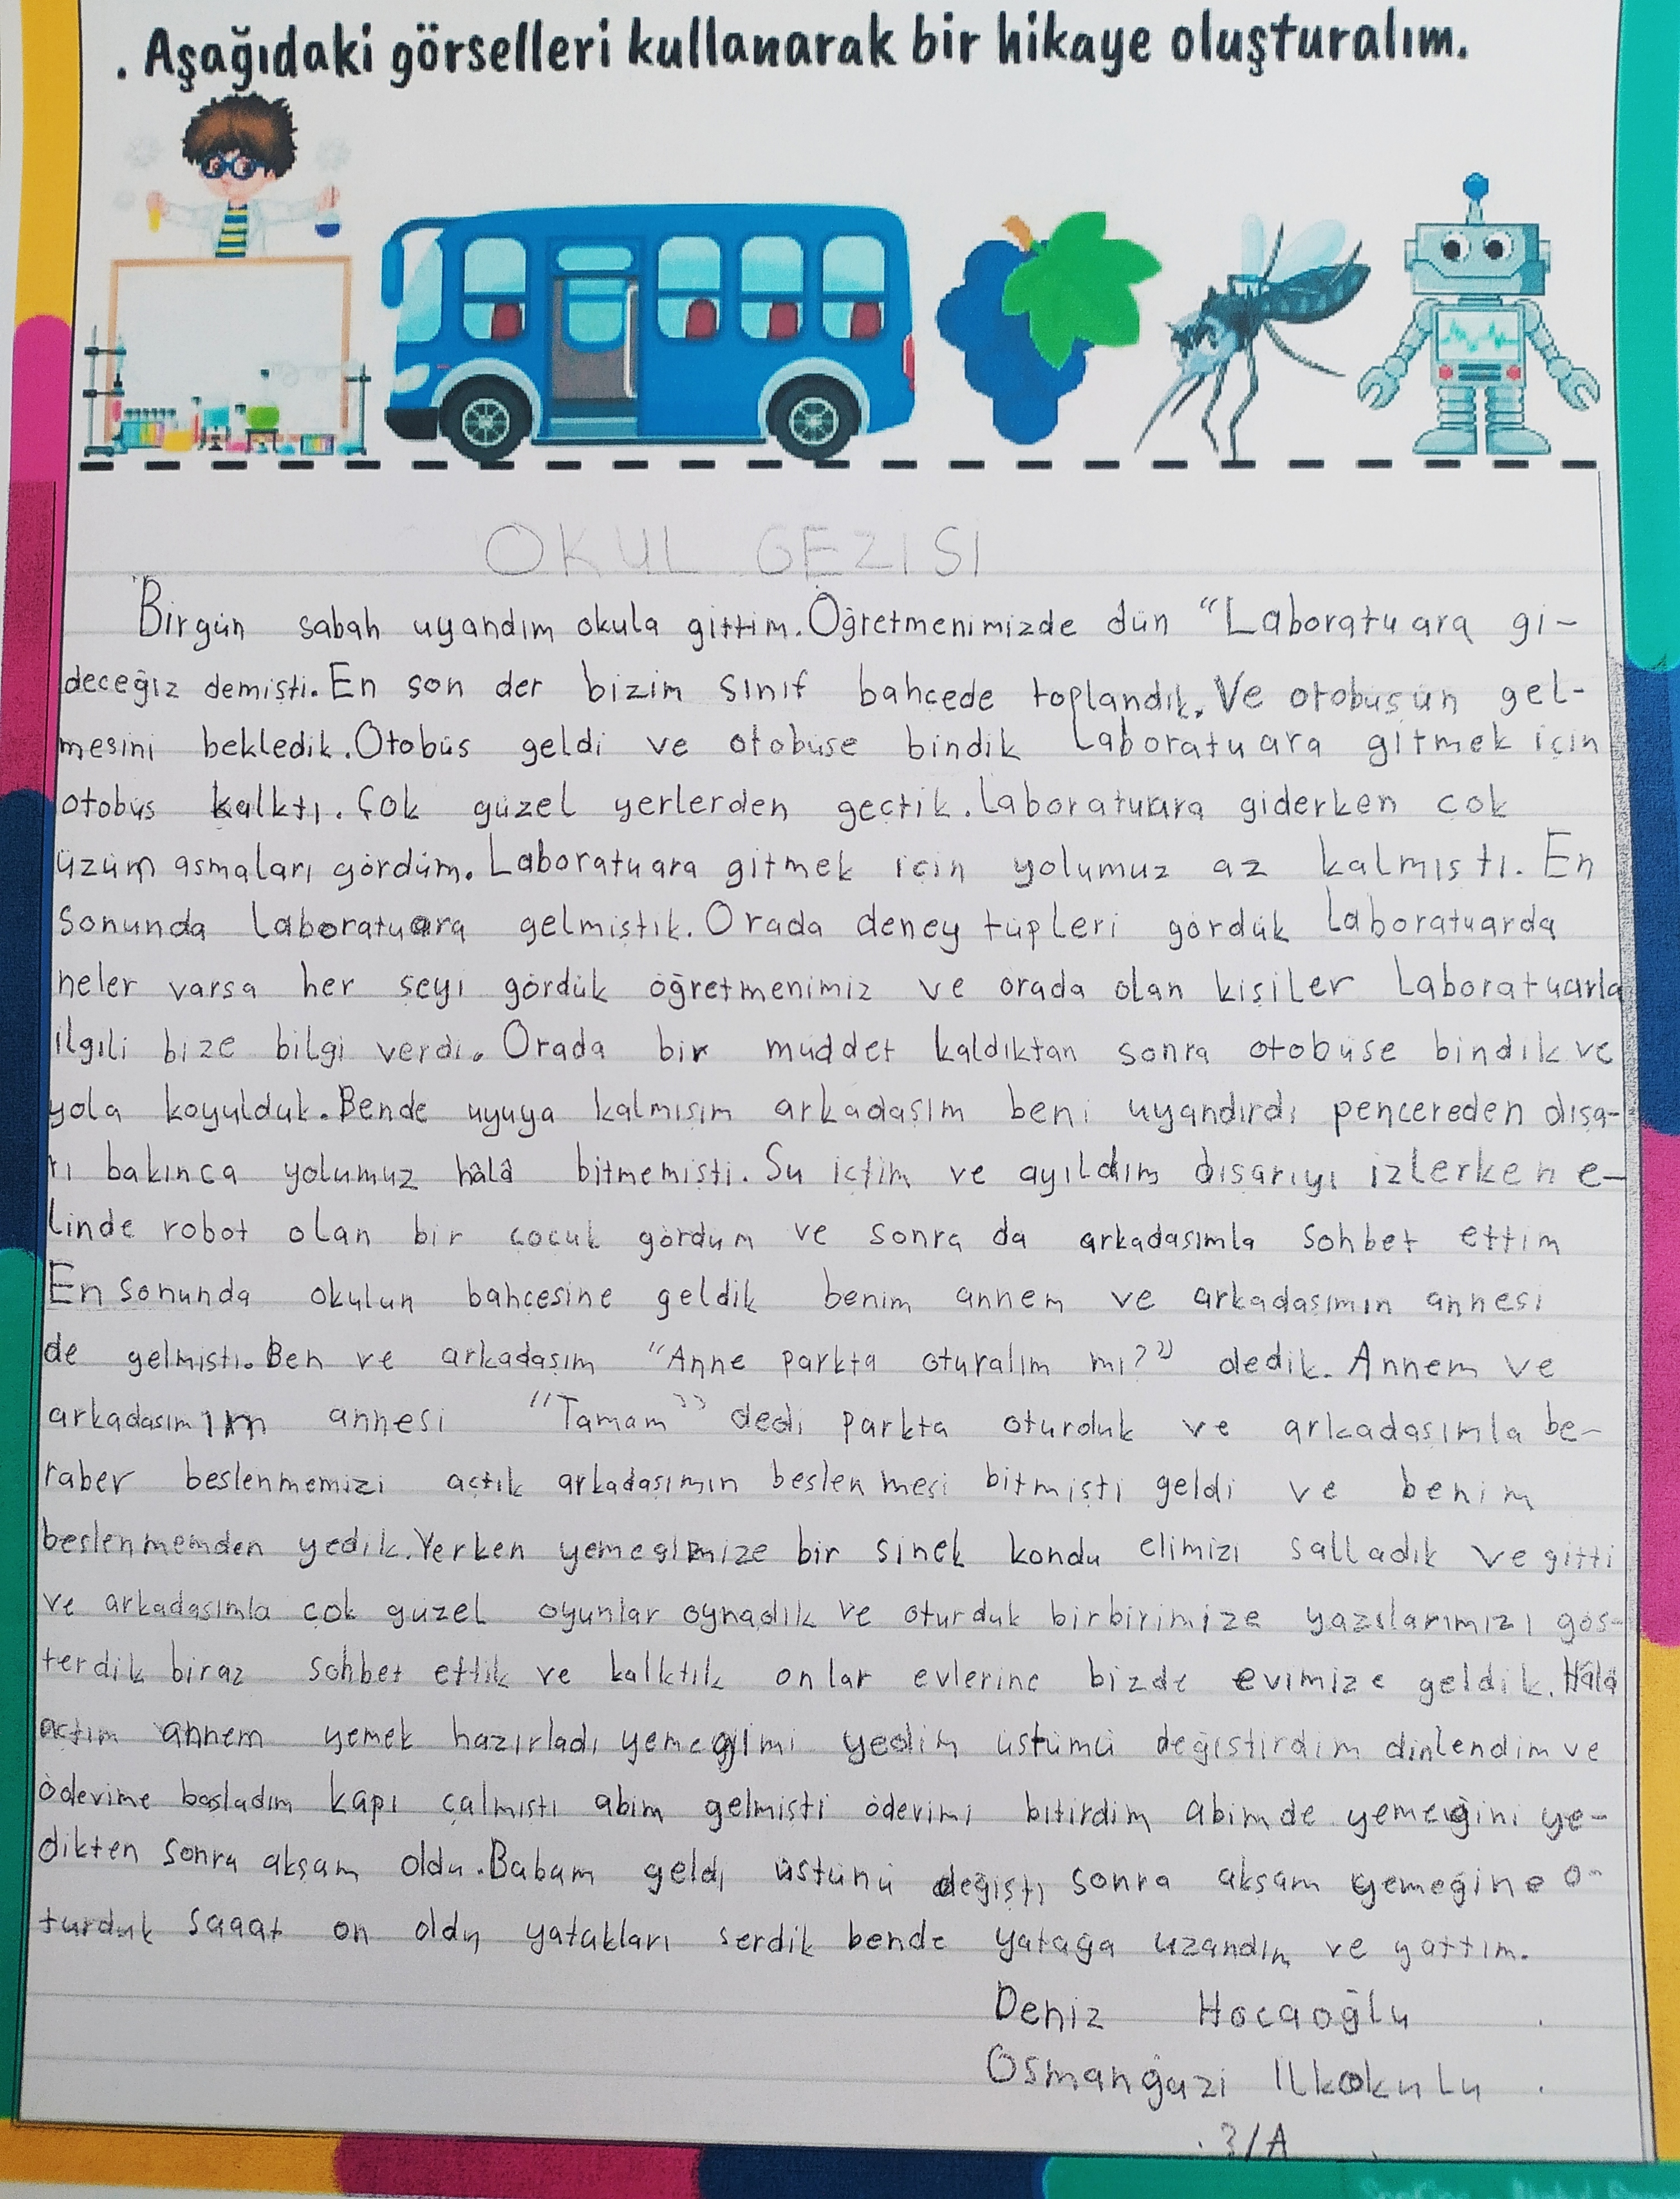 . Aşağıdaki görselleri kullanarak bir hikaye oluşturalım.
OKUL GEZISI
Birgün sabah uyandım okula gittim. Öğretmenimizde dün “Laboratuara gi-
deceğiz demişti. En son der bizim sınıf bahçede toplandık. Ve otobüsün gel-
mesini bekledik. Otobüs geldi ve otobüse bindik Laboratuara gitmek için
otobüs kalktı. Çok güzel yerlerden geçtik. Laboratuara giderken çok
üzüm asmaları gördüm. Laboratuara gitmek için yolumuz az kalmıştı. En
sonunda laboratuara gelmiştik. Orada deney tüpleri gördük Laboratuarda
neler varsa her şeyi gördük öğretmenimiz ve orada olan kişiler Laboratuarla
ilgili bize bilgi verdi. Orada bir müddet kaldıktan sonra otobüse bindik ve
yola koyulduk. Bende uyuya kalmışım arkadaşım beni uyandırdı pencereden dışa-
rı bakınca yolumuz hâlâ bitmemişti. Su içtim ve ayıldım dışarıyı izlerken e-
linde robot olan bir çocuk gördüm ve sonra da arkadaşımla sohbet ettim
En sonunda okulun bahçesine geldik benim annem ve arkadaşımın annesi
de gelmişti. Ben ve arkadaşım “Anne parkta oturalım mı?” dedik. Annem ve
arkadaşımın annesi “Tamam” dedi parkta oturduk ve arkadaşımla be-
raber beslenmemizi açtık arkadaşımın beslenmesi bitmişti geldi ve benim
beslenmemden yedik. Yerken yemeğimize bir sinek kondu elimizi salladık ve gitti
ve arkadaşımla çok güzel oyunlar oynadık ve oturduk birbirimize yazılarımızı gös-
terdik biraz sohbet ettik ve kalktık onlar evlerine bizde evimize geldik. Hâlâ
açtım annem yemek hazırladı yemeğimi yedim üstümü değiştirdim dinlendim ve
ödevime başladım kapı çalmıştı abim gelmişti ödevimi bitirdim abimde yemeğini ye-
dikten sonra akşam oldu. Babam geldi üstünü değişti sonra akşam yemeğine o-
turduk saaat on oldu yatakları serdik bende yatağa uzandım ve yattım.
Deniz Hocaoğlu
Osmangazi İlkokulu
3/A